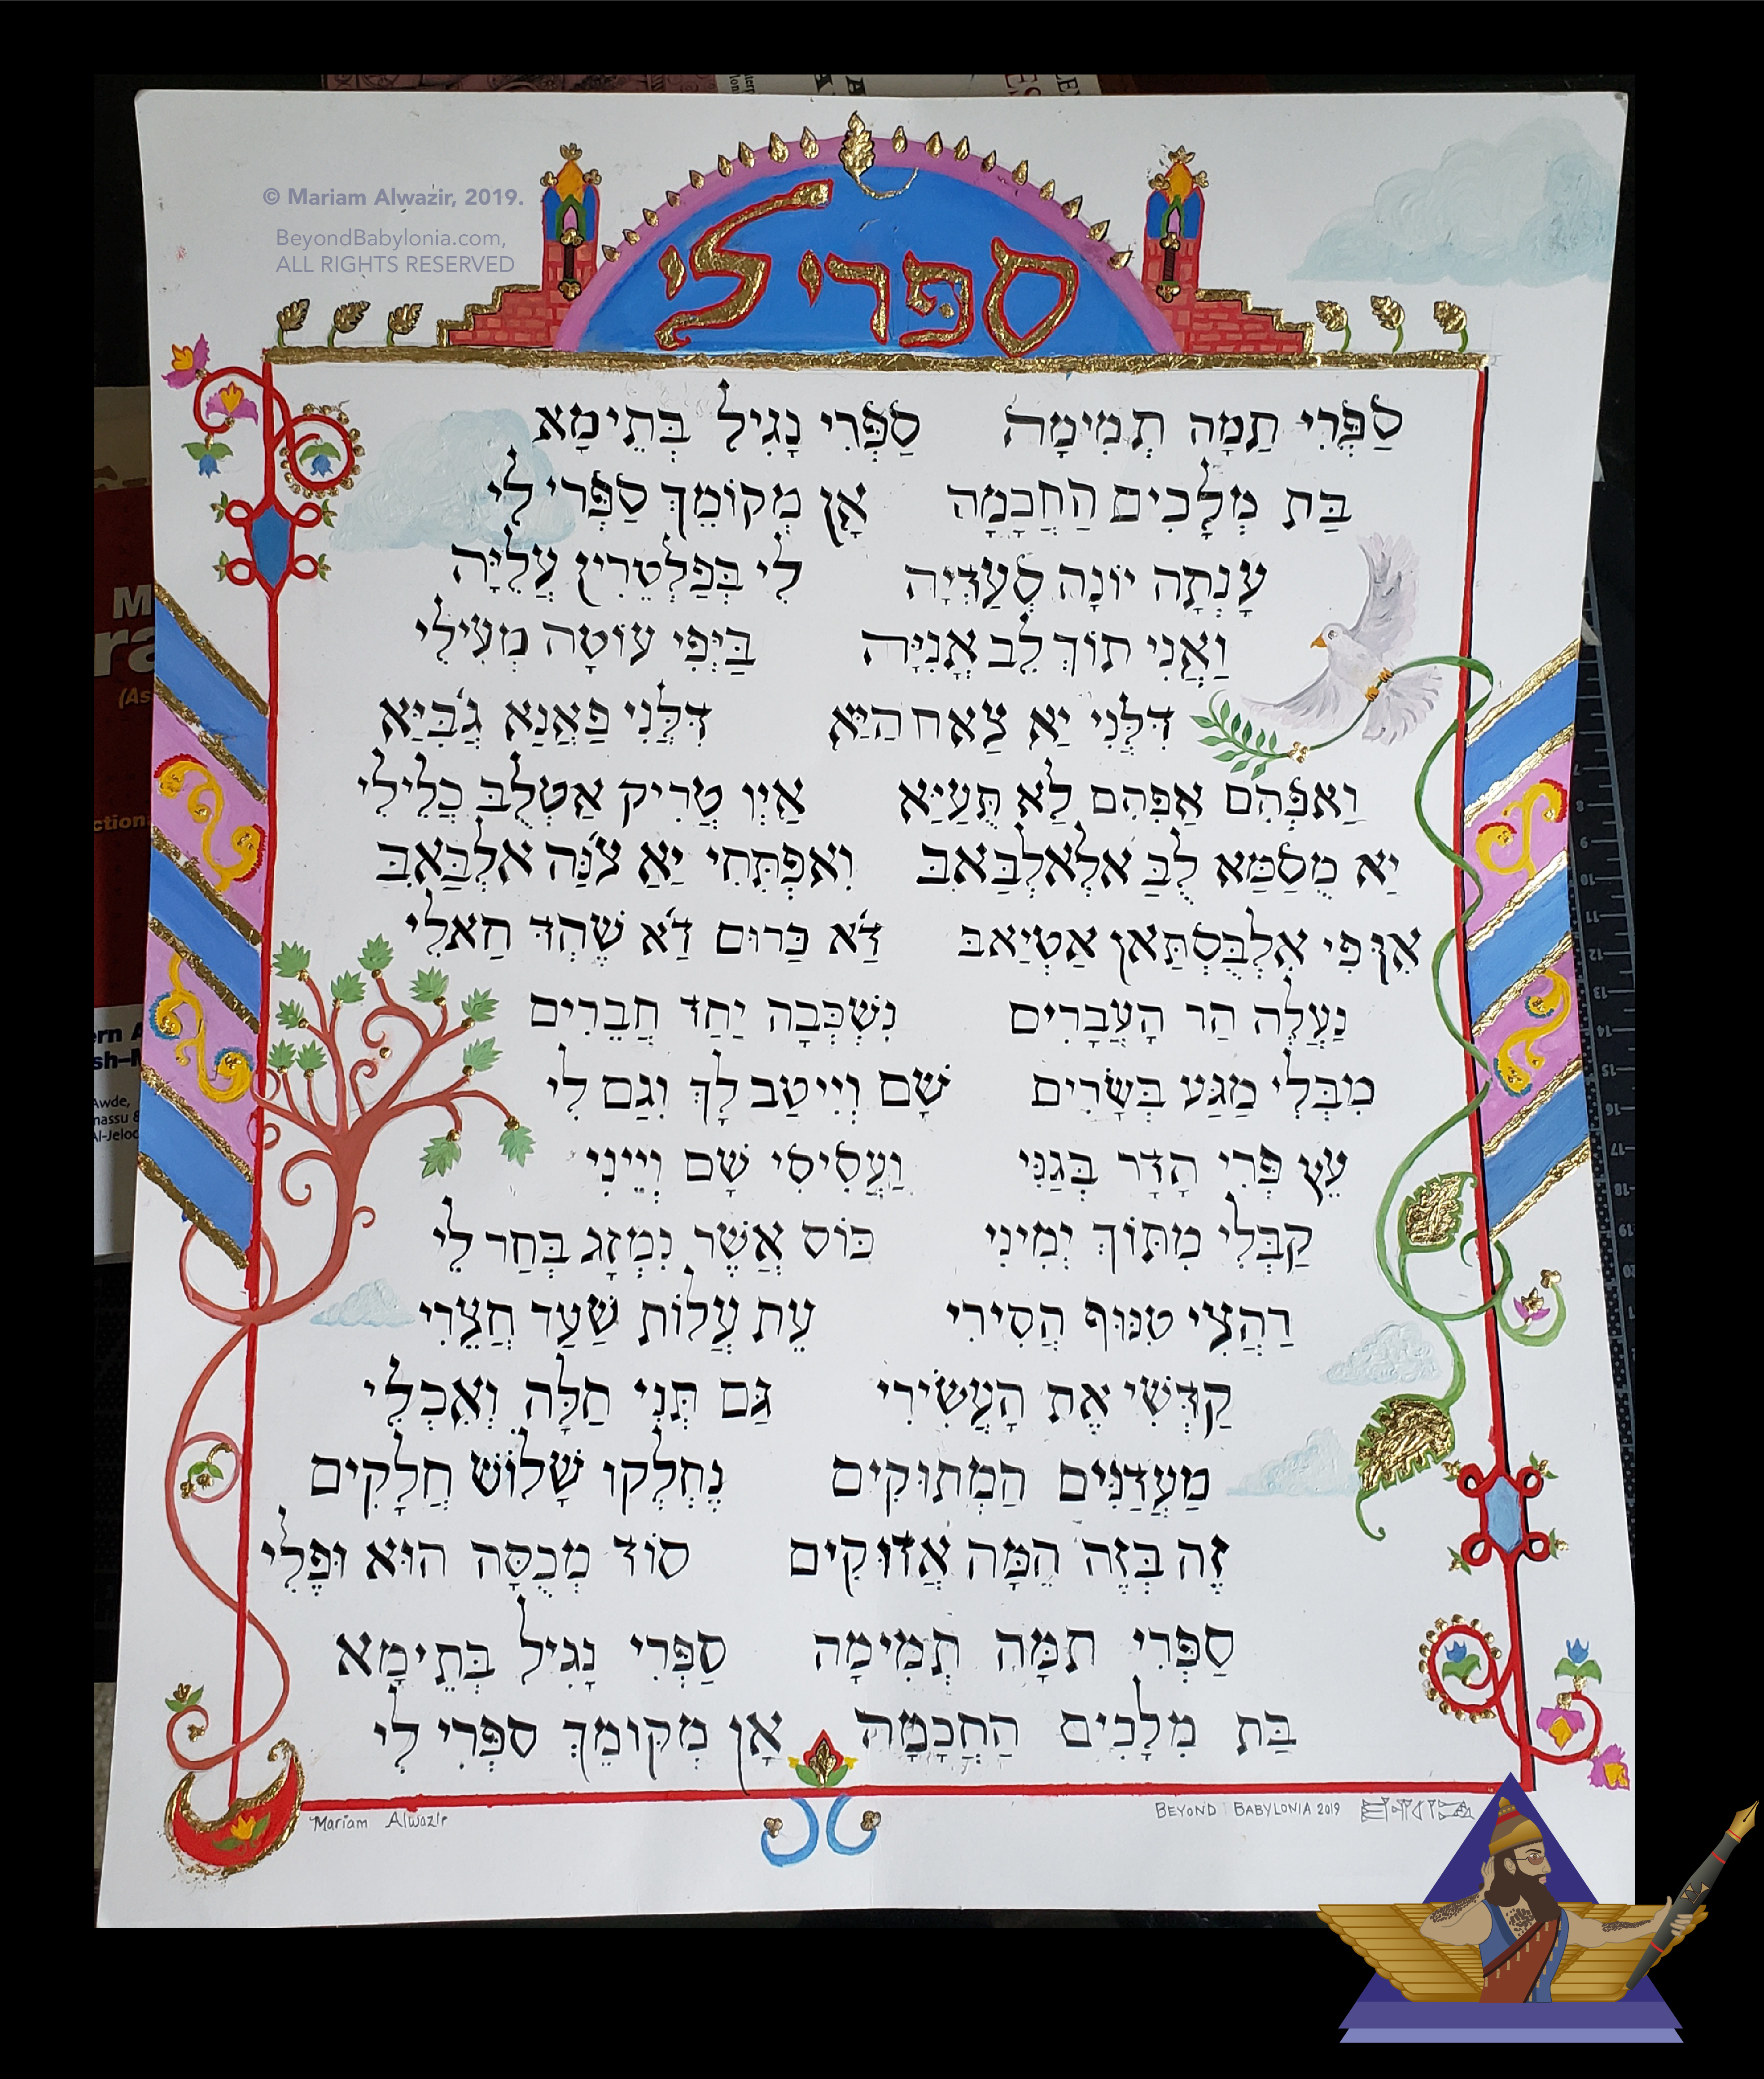 © Mariam Alwazir, 2019.
BeyondBabylonia.com,
ALL RIGHTS RESERVED
ספּרי לי
סַפְּרִי תַמָּה תְמִימָה סַפְּרִי נָגִיל בְּתֵימָא
בַּת מְלָכִים הַחֲכָמָה אָן מְקוֹמֵךְ סַפְּרִי לִי
עָנְתָה יוֹנָה סְעַדְיָה לִי בְּפַלְטֵרִין עֲלִיָּה
וַאֲנִי תוֹךְ לֵב אֳנִיָּה בַּיֳּפִי עוֹטָה מְעִילִי
דִּלְּנִי יַא צַאח הַיַּא דִּלְּנִי פַאֲנַא גְ֗בִּיַּא
וַאפְּהִם אַפְּהִם לַא תֻּעַיַּא אַיְן טְרִיק אַטְלֻבּ כְלִילִי
יַא מֻסַמַּא לֻבּ אלְאלְבַּאבּ וִאפְתְּחִי יַא צ֗נַּה אלְבַּאבּ
אִן פִי אִלְבֻּסְתַּאן אַטְיַאבּ דַ֗א כַּרוּם דַ֗א שֶׁהְדּ חַאלִי
נַעֲלֶה הַר הָעֲבָרִים נִשְׁכְּבָה יַחַד חֲבֵרִים
מִבְּלִי מַגַּע בְּשָׂרִים שָׁם וְיִיטַב לָךְ וְגַם לִי
עֵץ פְּרִי הָדָר בְּגַנִּי וַעֲסִיסִי שָׁם וְיֵינִי
קַבְּלִי מִתּוֹךְ יְמִינִי כּוֹס אֲשֶׁר נִמְזָג בְּחַר לִי
רַהֲצִי טִנּוּף הֲסִירִי עֵת עֲלוֹת שַׁעַר חֲצֵרִי
קַדְּשִׁי אֶת הָעֲשִׂירִי גַּם תְּנִי חַלָּה וְאִכְלִי
מַעֲדַנִּים הַמְתוּקִים נֶחְלְקוּ שָׁלוֹשׁ חֲלָקִים
זֶה בְּזֶה הֵמָּה אֲדוּקִים סוֹד מְכֻסָּה הוּא וּפֶלִי
סַפְּרִי תַמָּה תְּמִימָה סַפְּרִי נָגִיל בְּתֵימָא
בַּת מְלָכִים הַחֲכָמָה אָן מְקוֹמֵךְ סַפְּרִי לִי
Mariam Alwazir
BEYOND BABYLONIA 2019